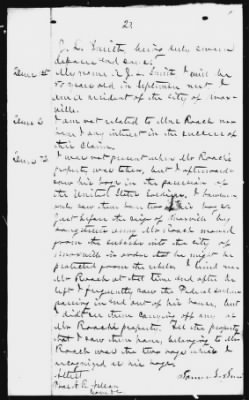 23
J. L. Smith being duly sworn
deposes and says
My name is J. L. Smith I will be
years old in September next I
am a resident of the city of
ville.
I am not related to Mr Roach nor
have I any interest in the success of
this claim.
I was not present when Mr Roach's
property was taken, but I afterwards
saw his in the possession of
the United States Soldiers. I
only saw them have two of his
just before the siege of Knoxville by
Longstreet Mr Roach moved
from the suburbs into the city of
Knoxville in order that he might be
protected from the rebels. I lived near
Mr Roach at that time and after he
left I frequently saw the Federal soldiers
passing in and out of his house, but
I did not see them carrying off any of
Mr Roach's property. The property
that I saw them have, belonging to Mr
Roach was the two which I
recognized as his
Attest